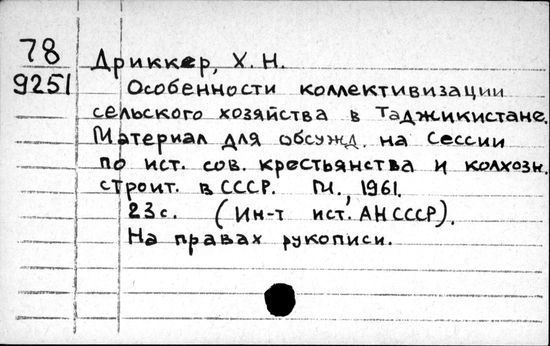 78 Дриккер, Х. Н.
9251 Особенности коллективизации
сельского хозяйства в Таджикистане.
Материал для обсужд. на Сессии
по ист. сов. крестьянства и колхозн.
строит. в СССР. М., 1961.
23 с. (Ин-т ист. АН СССР).
На правах рукописи.